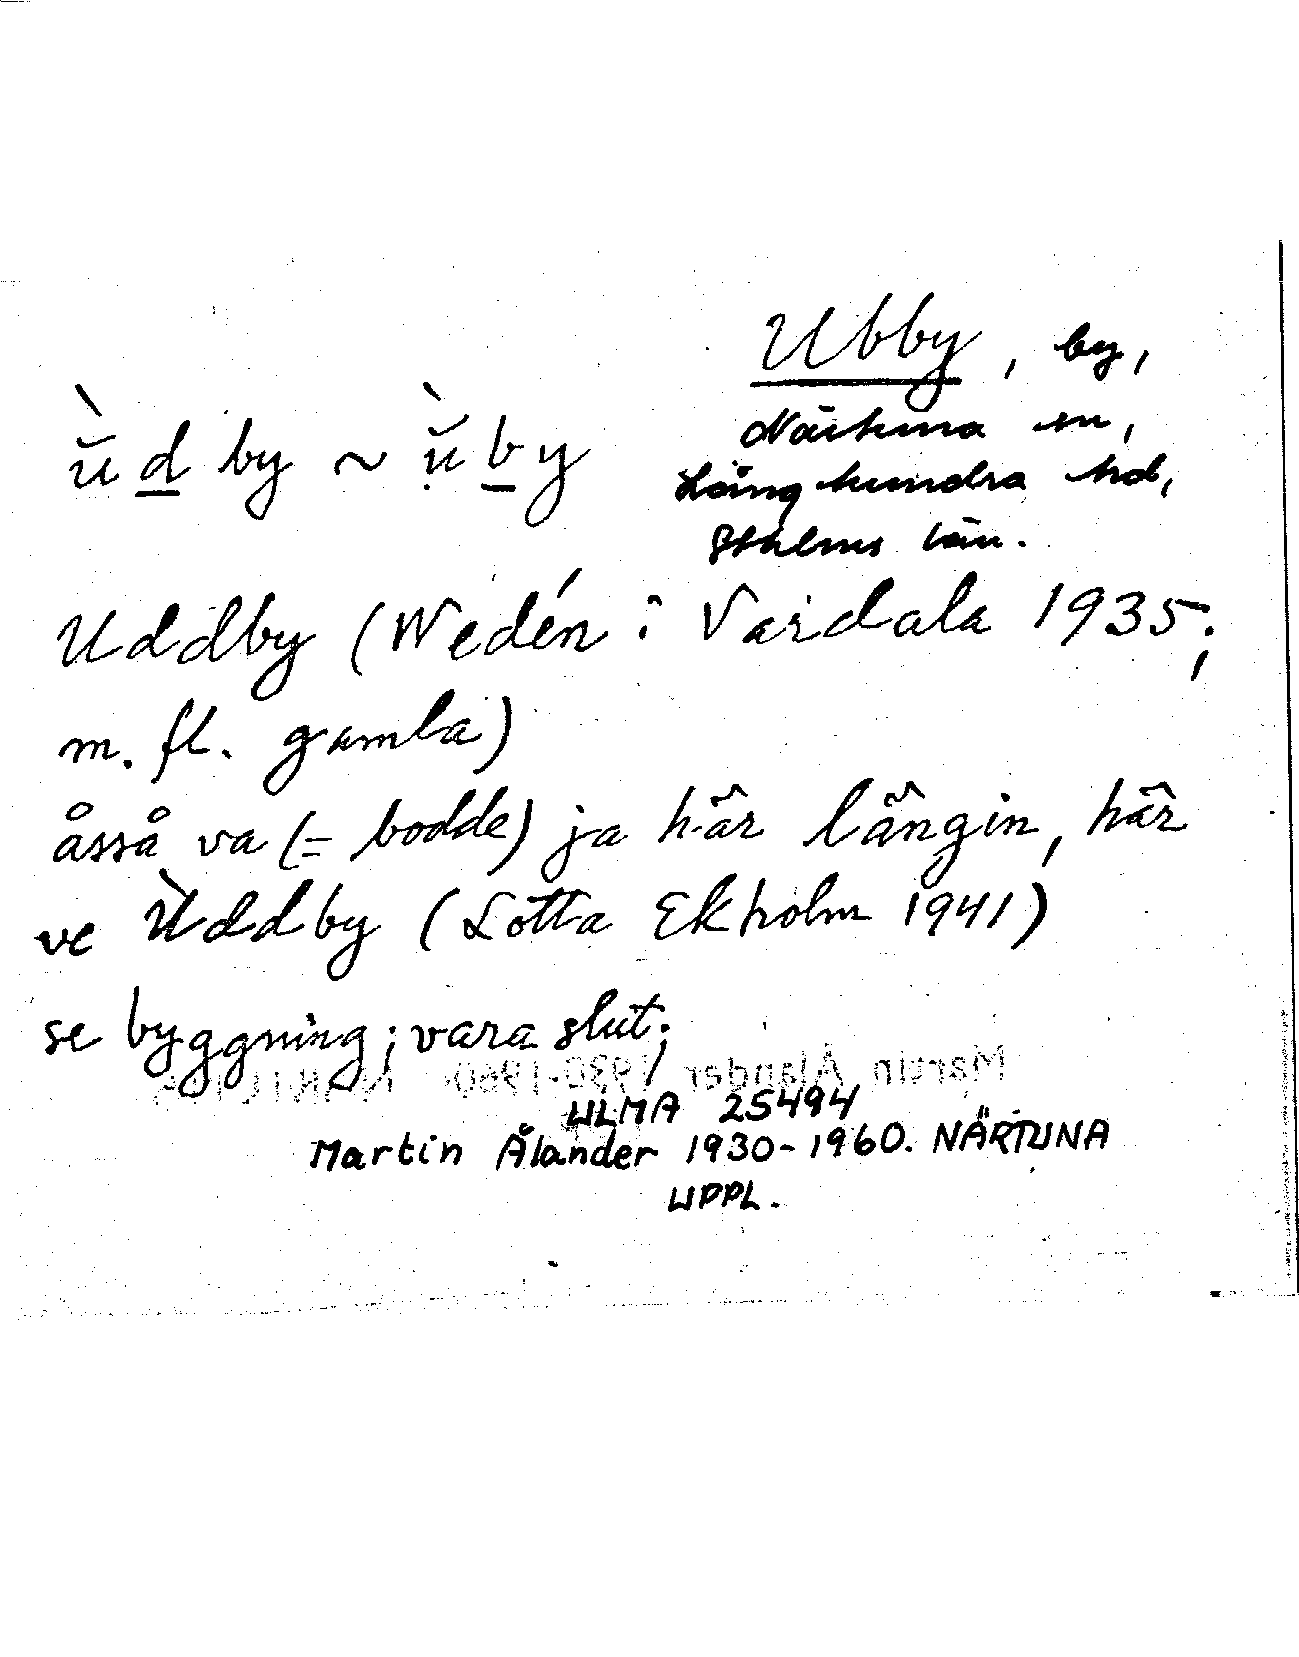 Ubby, by,
Närtuna sn,
Långhundra hd,
Sthlms län.
ŭ̀d̲by ~ ụ̆̀b̲y
Uddby (Wedén i Vardala 1935;
m. fl. gamla)
åsså va (= bodde) ja hä̂r lä̂ngin, hä̂r
ve Ùddby (Lotta Ekholm 1941)
se byggning; vara slut;
Martin Ålander 1930-1960. NÄRTUNA
ULMA 25494
Martin Ålander 1930-1960. NÄRTUNA
UPPL.